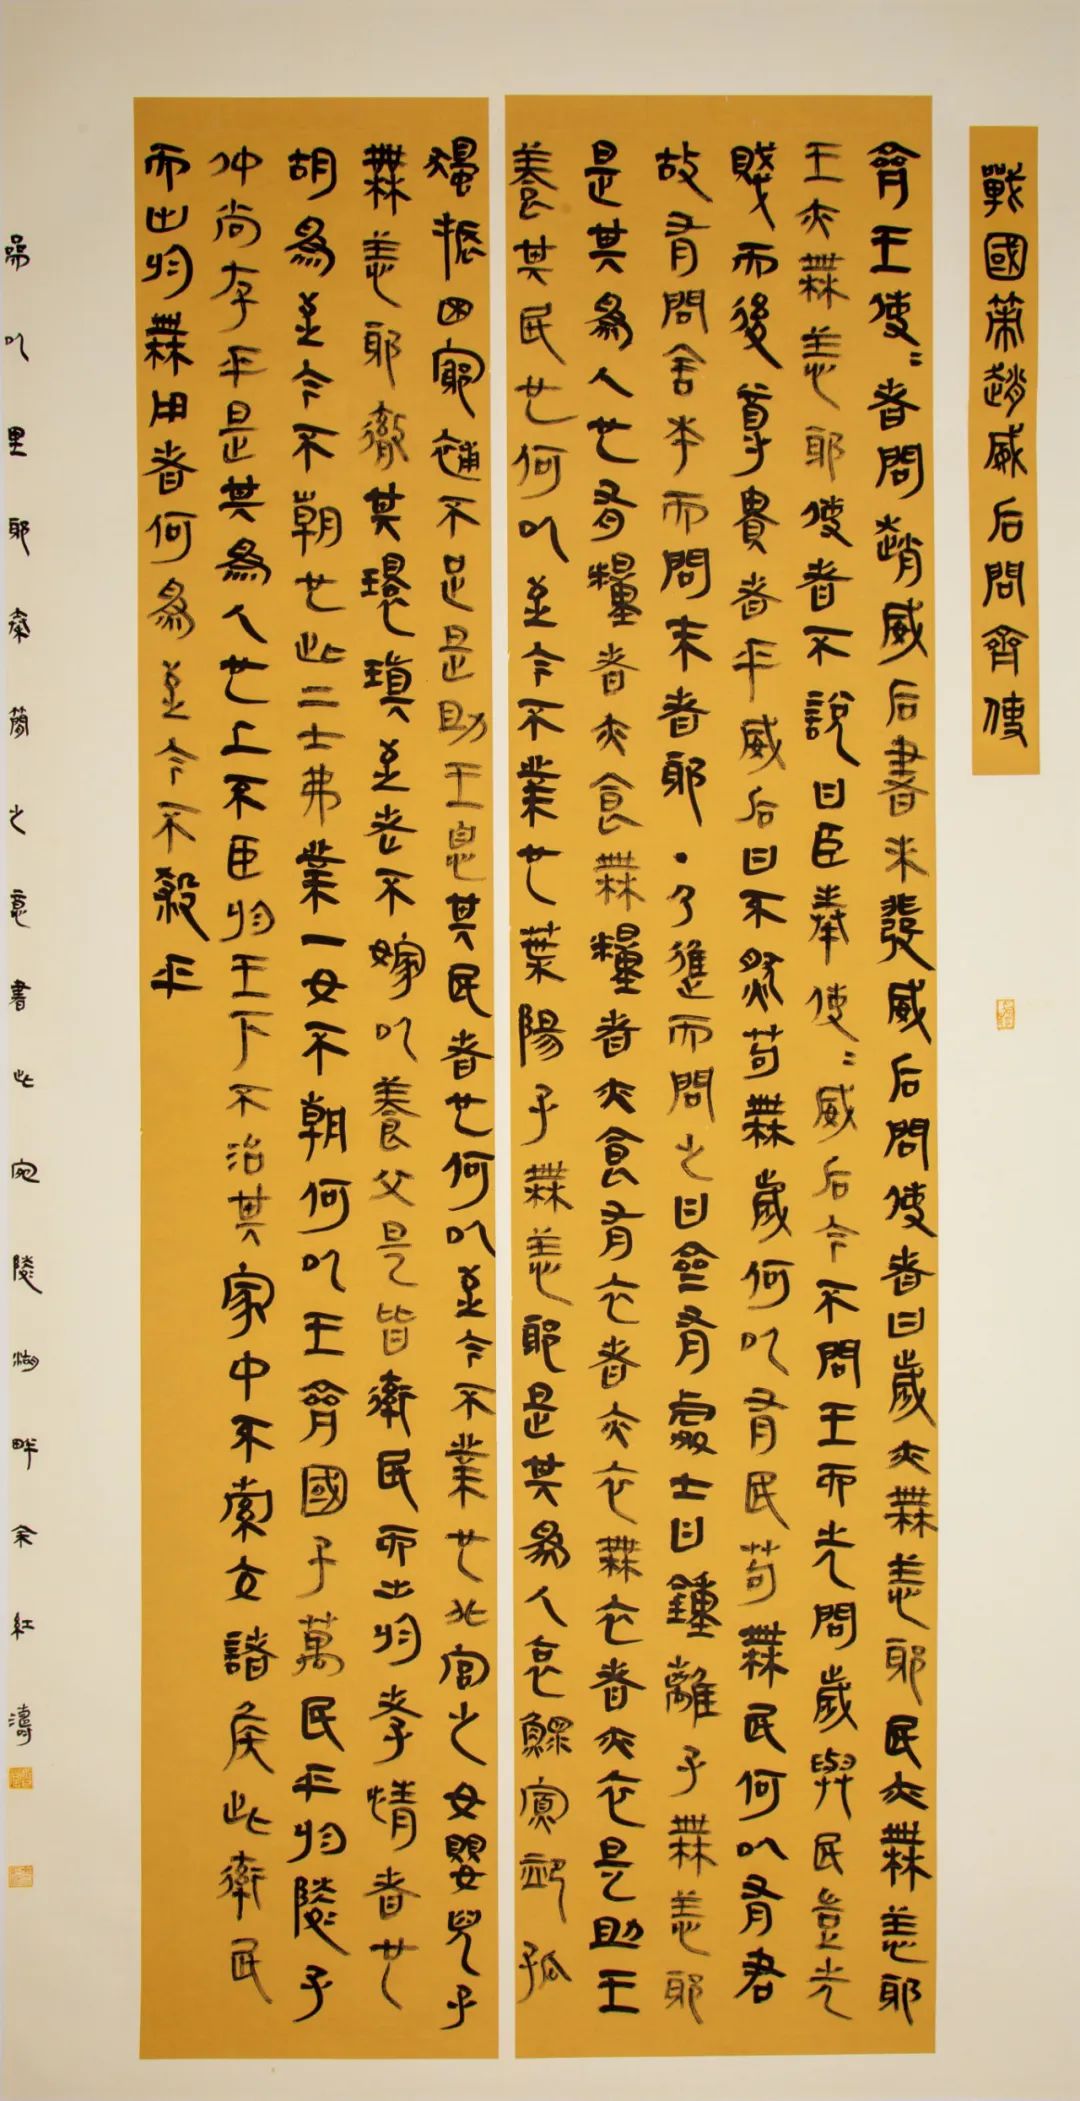 戰國策趙威后問齊使
齊王使=者問趙威后書未發威后問使者曰歲亦無恙耶民亦無恙耶
王亦無恙耶使者不說曰臣奉使=威后今不問王而先問歲與民豈先
賤而後尊貴者乎威后曰不然苟無歲何以有民苟無民何以有君
故有問舍本而問末者耶·乃進而問之曰齊有處士曰鍾離子無恙耶
是其為人也有糧者亦食無糧者亦食有衣者亦衣無衣者亦衣是助王
養其民也何以至今不業也葉陽子無恙耶是其為人哀鰥寡卹孤
獨振困窮補不足是助王息其民者也何以至今不業也北宮之女嬰兒子
無恙耶徹其環瑱至老不嫁以養父母是皆率民而出於孝情者也
胡為至今不朝也此二士弗業一女不朝何以王齊國子萬民乎於陵子
仲尚存乎是其為人也上不臣於王下不治其家中不索交諸侯此率民
而出於無用者何為至今不殺乎
略以里耶秦簡之意書此宛陵湖畔余紅濤